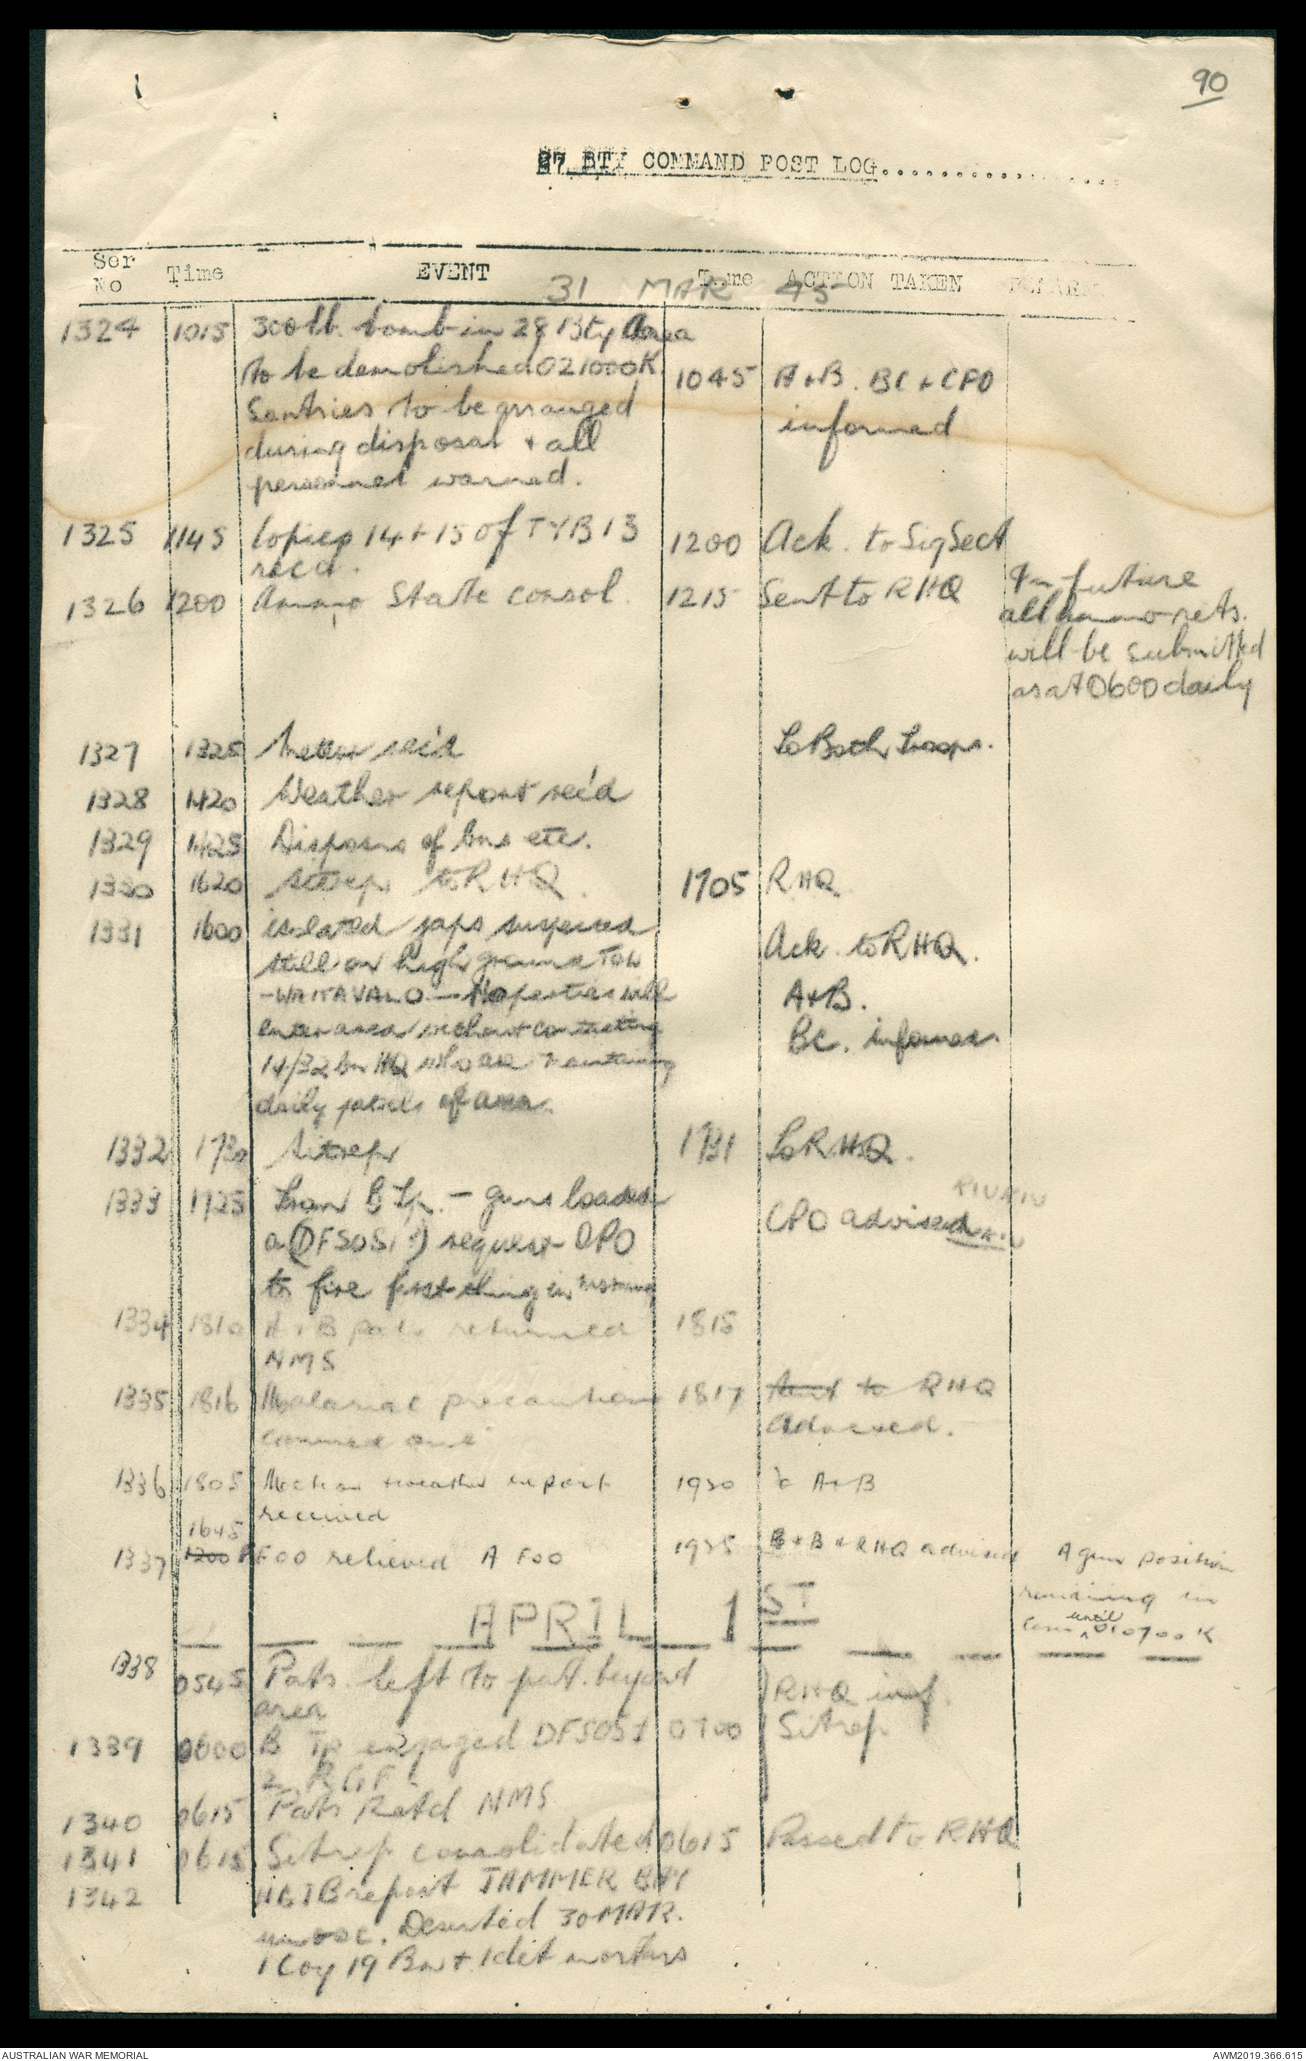 90
27 BTY COMMAND POST LOG..................
Ser No Time EVENT Time ACTION TAKEN REMARKS
31 MAR 45
1324 1015 300 lb. bomb in 28 Bty Area
to be demolished 021000K. 1045 A + B. BC + CPO
Sentries to be arranged informed
during disposal + all
personnel warned.
1325 1145 Copies 14 + 15 of TYB 13 1200 Ack. to Sig Sect
recd.
1326 1200 Ammo State consol. 1215 Sent to RHQ In future
all ammo rets.
will be submitted
as at 0600 daily
1327 1325 Meteor rec'd To Both Troops.
1328 1420 Weather report rec'd
1329 1425 Disposns of Guns etc.
1330 1620 Sitrep to RHQ. 1705 RHQ.
1331 1600 isolated japs suspected Ack. to RHQ.
still on high ground TOW A+B.
-WAITAVALO - No parties will BC. informed
enter area without contacting
14/32 bn HQ who are maintaining
daily patrols of area.
1332 1730 Sitrep 1731 To RHQ.
1333 1725 From B Tp. - guns loaded CPO advised
on (DFSOS1) request OPO
to fire first thing in morning
1334 1810 A + B pats returned 1815
NMS
1335 1816 Malarial precautions 1817 Sent to RHQ
commenced Advised.
1336 1805 Meteor + weather report 1930 to A+B
received
1645
1337 1200 FOO relieved A FOO 1935 B + RHQ advised A gun position
remaining in
until 010700K
APRIL 1ST
1338 0545 Pats left to pat. beyond RHQ inf.
area
1339 0600 B Tp engaged DFSOS1 0700 Sitrep
2 RGF
1340 0615 Pats Retd NMS
1341 0615 Sitrep consolidated 0615 Passed to RHQ
1342 report JAMMER BAY
unocc. Deserted 30 MAR.
1 Coy 19 Bn + 1 det mortars
AUSTRALIAN WAR MEMORIAL
AWM2019.366.615